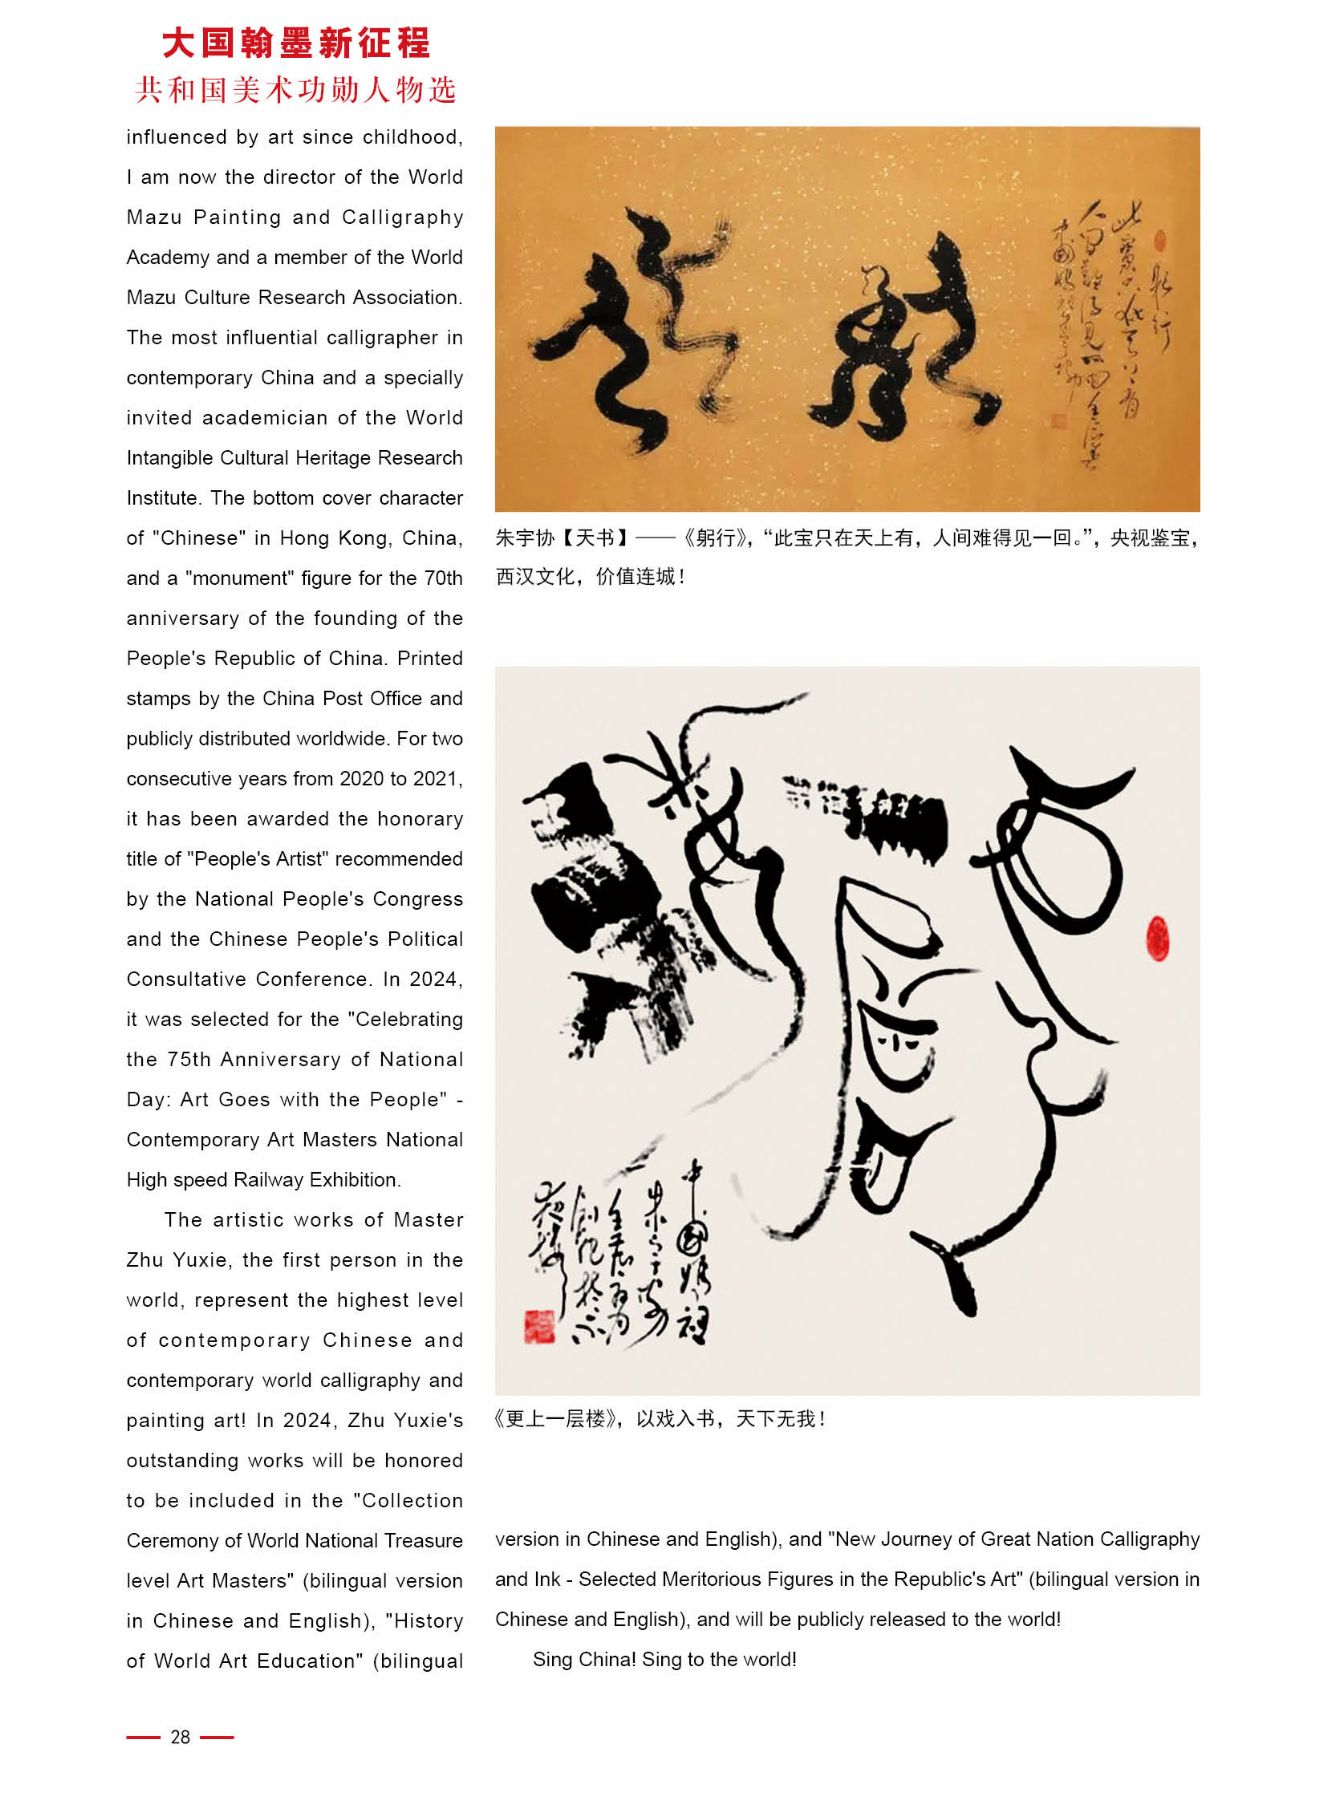 大国翰墨新征程
共和国美术功勋人物选
influenced by art since childhood,
I am now the director of the World
Mazu Painting and Calligraphy
Academy and a member of the World
Mazu Culture Research Association.
The most influential calligrapher in
contemporary China and a specially
invited academician of the World
Intangible Cultural Heritage Research
Institute. The bottom cover character
of "Chinese" in Hong Kong, China,
and a "monument" figure for the 70th
anniversary of the founding of the
People's Republic of China. Printed
stamps by the China Post Office and
publicly distributed worldwide. For two
consecutive years from 2020 to 2021,
it has been awarded the honorary
title of "People's Artist" recommended
by the National People's Congress
and the Chinese People's Political
Consultative Conference. In 2024,
it was selected for the "Celebrating
the 75th Anniversary of National
Day: Art Goes with the People" -
Contemporary Art Masters National
High speed Railway Exhibition.
The artistic works of Master
Zhu Yuxie, the first person in the
world, represent the highest level
of contemporary Chinese and
contemporary world calligraphy and
painting art! In 2024, Zhu Yuxie's
outstanding works will be honored
to be included in the "Collection
Ceremony of World National Treasure
level Art Masters" (bilingual version
in Chinese and English), "History
of World Art Education" (bilingual
躬行
此宝只在天上有
朱宇协【天书】——《躬行》，“此宝只在天上有，人间难得见一回。”，央视鉴宝，
西汉文化，价值连城！
更上一层楼
中国妈祖
《更上一层楼》，以戏入书，天下无我！
version in Chinese and English), and "New Journey of Great Nation Calligraphy
and Ink - Selected Meritorious Figures in the Republic's Art" (bilingual version in
Chinese and English), and will be publicly released to the world!
Sing China! Sing to the world!
28